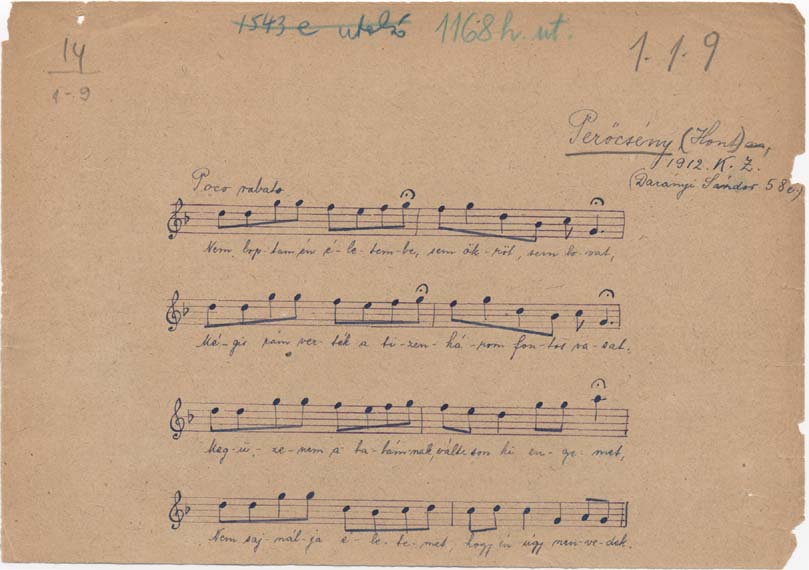 1543 e utolsó 1168 h. ut.
14
1-9
1. 1. 9
Perőcsény (Hont),
1912. K. Z.
(Darányi Sándor 58 é.)
Poco rubato
Nem lop-tam én é-le-tem-be, sem ök-röt, sem lo-vat,
Mé-gis rám ver-ték a ti-zen-há-rom fon-tos va-sat.
Meg-ü-ze-nem a ba-bám-nak, váltson ki en-ge-met,
Nem saj-nál-ja é-le-te-met, hogy én úgy szen-ve-dek.